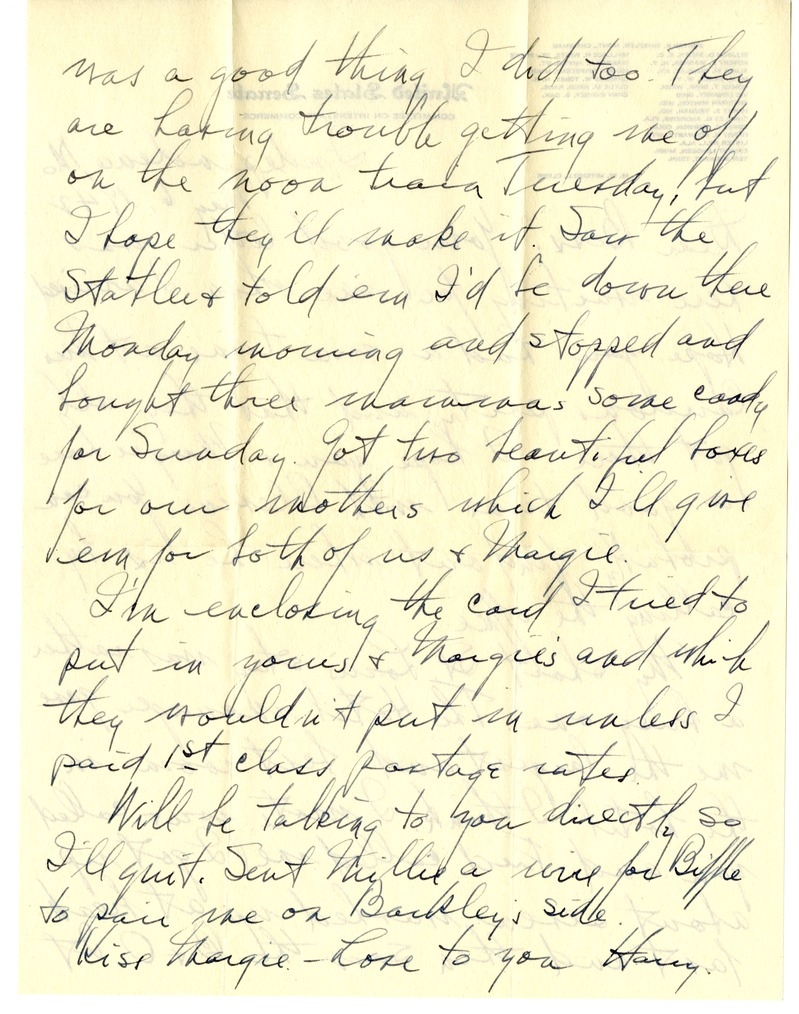 was a good thing I did too. They
are having trouble getting me off
on the noon train Tuesday, but
I hope they'll make it. Saw the
Statler & told em I'd be down there
Monday morning and stopped and
bought three mammas some candy
for Sunday. Got two beautiful boxes
for our mothers which I'll give
'em for both of us & Margie.
I'm enclosing the card I tried to
put in yours & Margie's and which
they wouldn't put in unless I
paid 1st class postage rates.
Will be talking to you directly so
I'll quit. Sent Millie a wire for Biffle
to pair me on Barkley's side.
Kiss Margie - Love to you Harry.